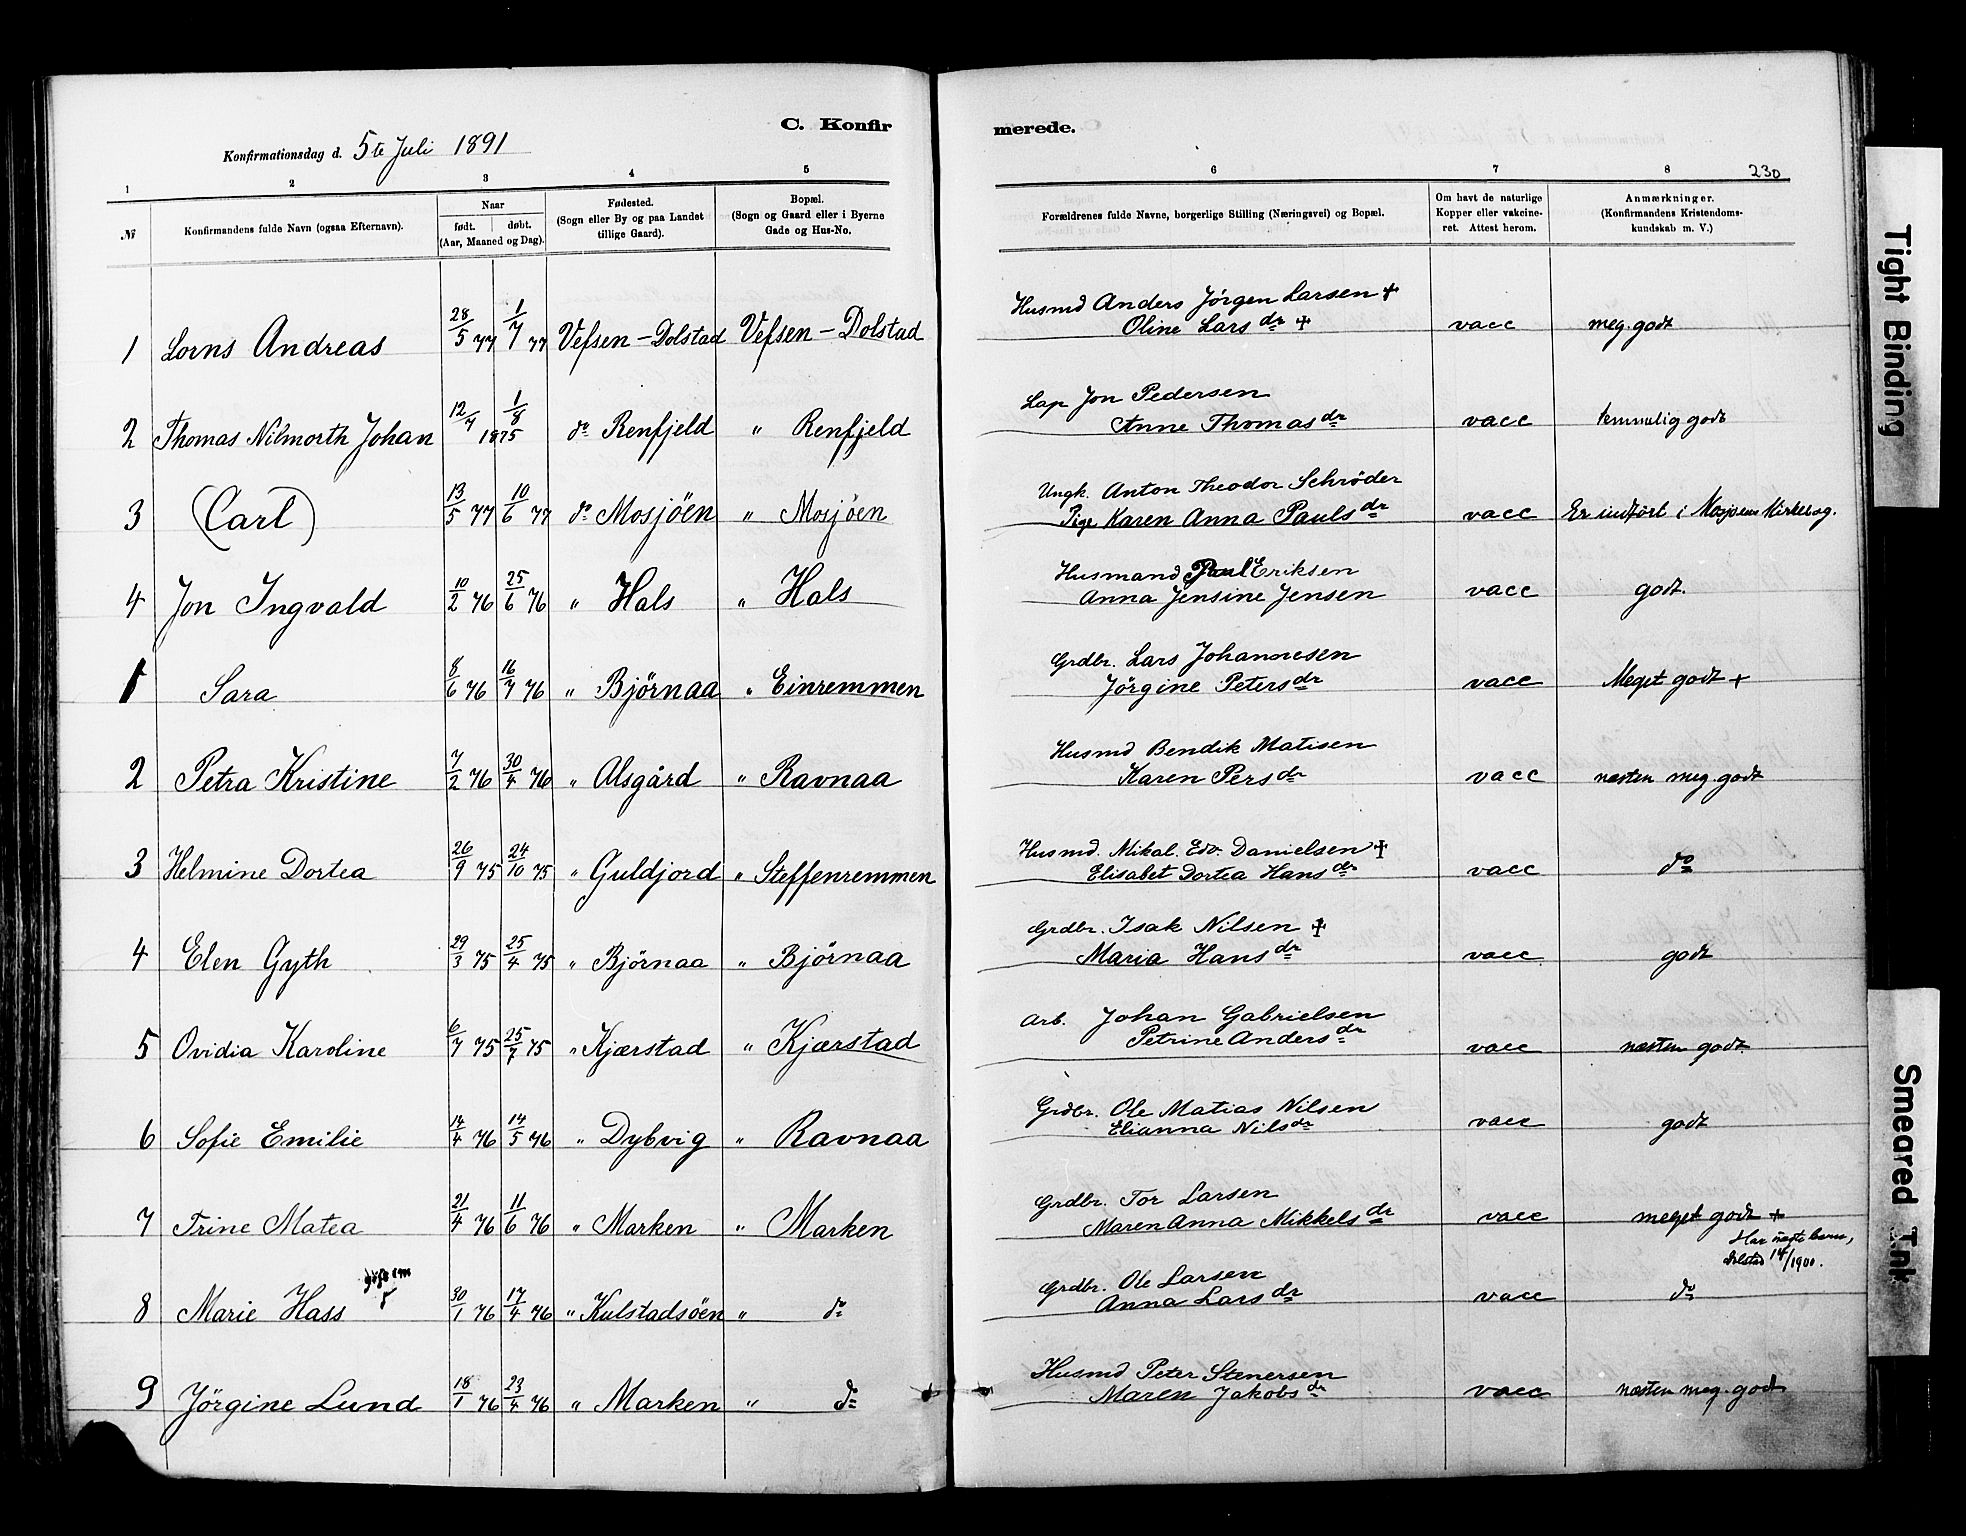 C. Konfirmerede.
Konfirmationsdag d. 5te Juli 1891
230
1 2 3 4 5 6 7 8
№ Konfirmandens fulde Navn (ogsaa Efternavn). Naar født. døbt. (Aar, Maaned og Dag). Fødested. (Sogn eller By og paa Landet tillige Gaard). Bopæl. (Sogn og Gaard eller i Byerne Gade og Hus-No. Forældrenes fulde Navne, borgerlige Stilling (Næringsvei) og Bopæl. Om havt de naturlige Kopper eller vakcineret. Attest herom. Anmærkninger. (Konfirmandens Kristendomskundskab m. V.)
1 Lorns Andreas 28/5 77 1/7 77 Vefsen-Dolstad Vefsen-Dolstad Husmd Anders Jørgen Larsen + vacc meg. godt
Oline Larsdr +
2 Thomas Nilmorth Johan 12/4 1/8 1875 do Renfjeld " Renfjeld Lap Jon Pedersen vacc temmelig godt
Anne Thomasdr
3 (Carl) 13/5 77 10/6 77 do Mosjöen " Mosjöen Ungk. Anton Theodor Schröder vacc Er indført i Mosjøens Kirkebog.
Pige Karen Anna Paulsdr
4 Jon Ingvald 10/2 76 25/6 76 " Hals " Hals Husmand Paul Eriksen vacc godt.
Anna Jensine Jensen
1 Sara 8/6 76 16/7 76 " Björnaa " Einremmen Grdbr. Lars Johannesen vacc Meget godt +
Jörgine Petersdr
2 Petra Kristine 7/2 76 30/4 76 " Alsgård " Ravnaa Husmd Bendik Matisen vacc næsten meg. godt
Karen Persdr
3 Helmine Dortea 26/9 75 24/10 75 " Guldjord " Steffenremmen Husmd. Mikal Edv. Danielsen + vacc do
Elisabet Dortea Hansdr
4 Elen Gyth 29/3 75 25/4 75 " Björnaa " Björnaa Grdbr. Isak Nilsen + vacc godt
Maria Hansdr
5 Ovidia Karoline 6/7 75 25/7 75 " Kjærstad " Kjærstad Arb. Johan Gabrielsen vacc næsten godt.
Petrine Andersdr
6 Sofie Emilie 14/4 76 14/5 76 " Dybvig " Ravnaa Grdbr. Ole Matias Nilsen vacc godt
Elianna Nilsdr
7 Trine Matea 21/4 76 11/6 76 " Marken " Marken Grdbr. Tor Larsen vacc meget godt +
Maren Anna Mikkelsdr
Har
14/1900.
8 Marie Hass 30/1 76 17/4 76 " Kulstadsöen " do Grdbr. Ole Larsen vacc do
Anna Larsdr
9 Jörgine Lund 18/1 76 23/4 76 " Marken " do Husmd Peter Stenersen vacc næsten meg. godt
Maren Jakobsdr
Tight Binding
Smeared Ink